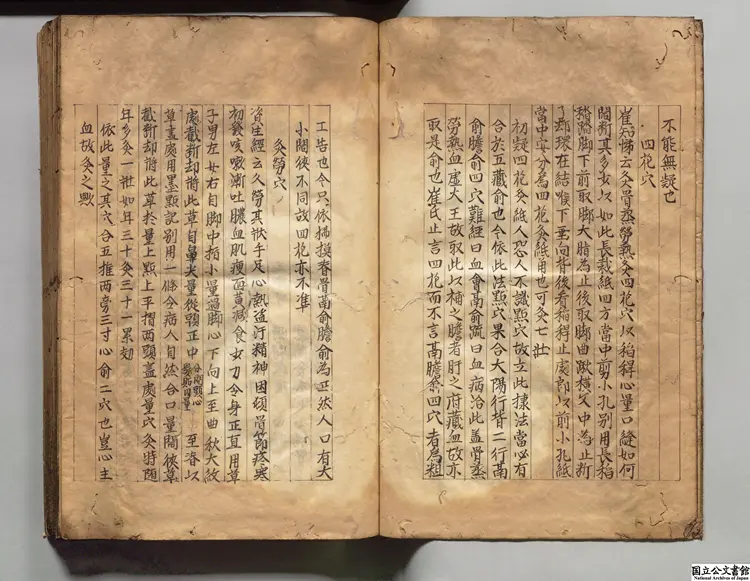 不能無疑也
四花穴
崔知悌云灸骨蒸勞熱灸四花穴以稻稈心量口縫如何
闊斷其多少以如此長裁紙四方當中剪小孔別用長稻
稈踏脚下前取脚大指為止後取脚曲䐐橫文中為止斷
了却環在結喉下垂向背後看稻稈止處即以前小孔紙
當中安分為四花灸紙角也可灸七壯
初疑四花灸紙人恐人不識點穴故立此捷法當必有
合於五藏俞也今依此法點穴果合太陽行背二行膈
俞膽俞四穴難經曰血會膈俞疏曰血病治此蓋骨蒸
勞熱血虛火王故取此以補之膽者肝之府藏血故亦
取是俞也崔氏止言四花而不言膈膽俞四穴者為粗
工告也今只依揣摸脊骨膈俞膽俞為正然人口有大
小闊狹不同故四花亦不準
灸勞穴
資生經云久勞其狀手足心熱盜汗精神困頓骨節疼寒
初發咳嗽漸吐膿血肌瘦面黃減食少力令身正直用草
子男左女右自脚中指小量過脚心下向上至曲秋大紋
處截斷却將此草自鼻尖量從頭正中 分開頭心髮貼肉量 至脊以
草盡處用墨點記別用一條令病人自然合口量闊狹草
截斷却將此草於量上點上平摺兩頭盡處量穴灸時隨
年多灸一壯如年三十灸三十一累効
依此量之其穴合五椎兩旁三寸心俞二穴也豈心主
血故灸之歟
国立公文書館
National Archives of Japan